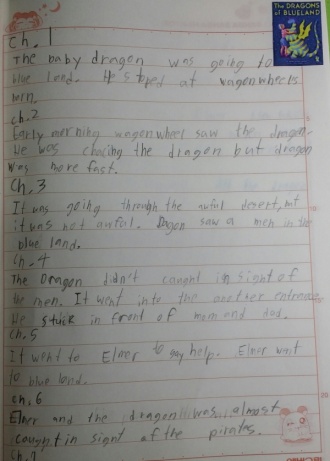 The DRAGONS
OF BLUELAND
Ch. 1
The baby dragon was going to
blue land. He stoped at wagonwheels
ch. 2
Early morning wagonwheel saw the dragon.
He was chacing the dragon but dragon
was more fast.
Ch. 3
It was going through the awful desert, but
it was not awful. Dagon saw a men in the
blue land.
Ch. 4
The Dragon didn't caught in sight of
the men. It went into the another entrence,
He stuck in front of mom and dad.
Ch. 5
It went to Elmer to say help. Elmer went
to blue land.
Ch. 6
Elmer and the dragon was almost
caught in sight of the
Ch. 7